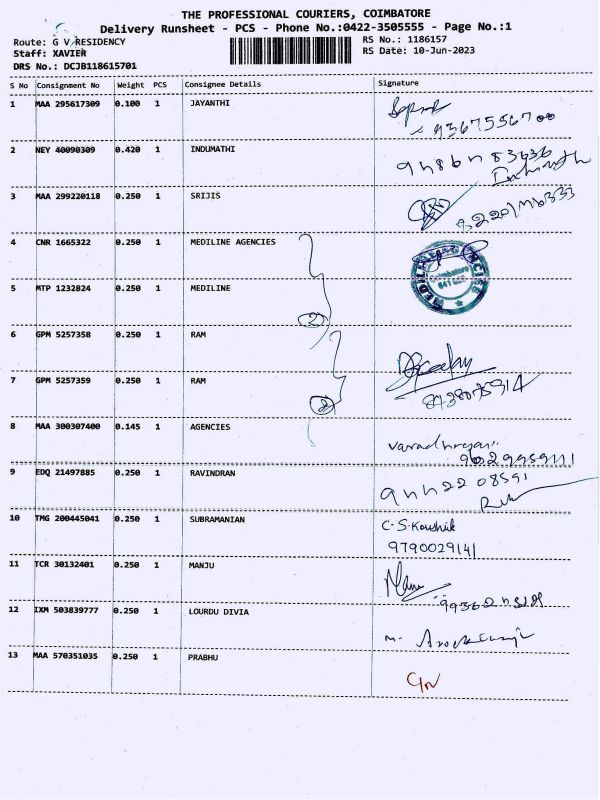 THE PROFESSIONAL COURIERS, COIMBATORE
Delivery Runsheet - PCS - Phone No.:0422-3505555 - Page No.:1
Route: G V RESIDENCY
RS No.: 1186157
Staff: XAVIER
RS Date: 10-Jun-2023
DRS No.: DCJB118615701
S No Consignment No Weight PCS Consignee Details Signature
1 MAA 295617309 0.100 1 JAYANTHI
9367556700
2 NEY 40090309 0.420 1 INDUMATHI
3 MAA 299220118 0.250 1 SRIJIS
4 CNR 1665322 0.250 1 MEDILINE AGENCIES
Coimbatore
5 MTP 1232824 0.250 1 MEDILINE
2
6 GPM 5257358 0.250 1 RAM
7 GPM 5257359 0.250 1 RAM
2
8 MAA 300307400 0.145 1 AGENCIES
9 EDQ 21497885 0.250 1 RAVINDRAN
10 TMG 200445041 0.250 1 SUBRAMANIAN C.S.Koushik
9790029141
11 TCR 30132401 0.250 1 MANJU
12 IXM 503839777 0.250 1 LOURDU DIVIA
13 MAA 570351035 0.250 1 PRABHU